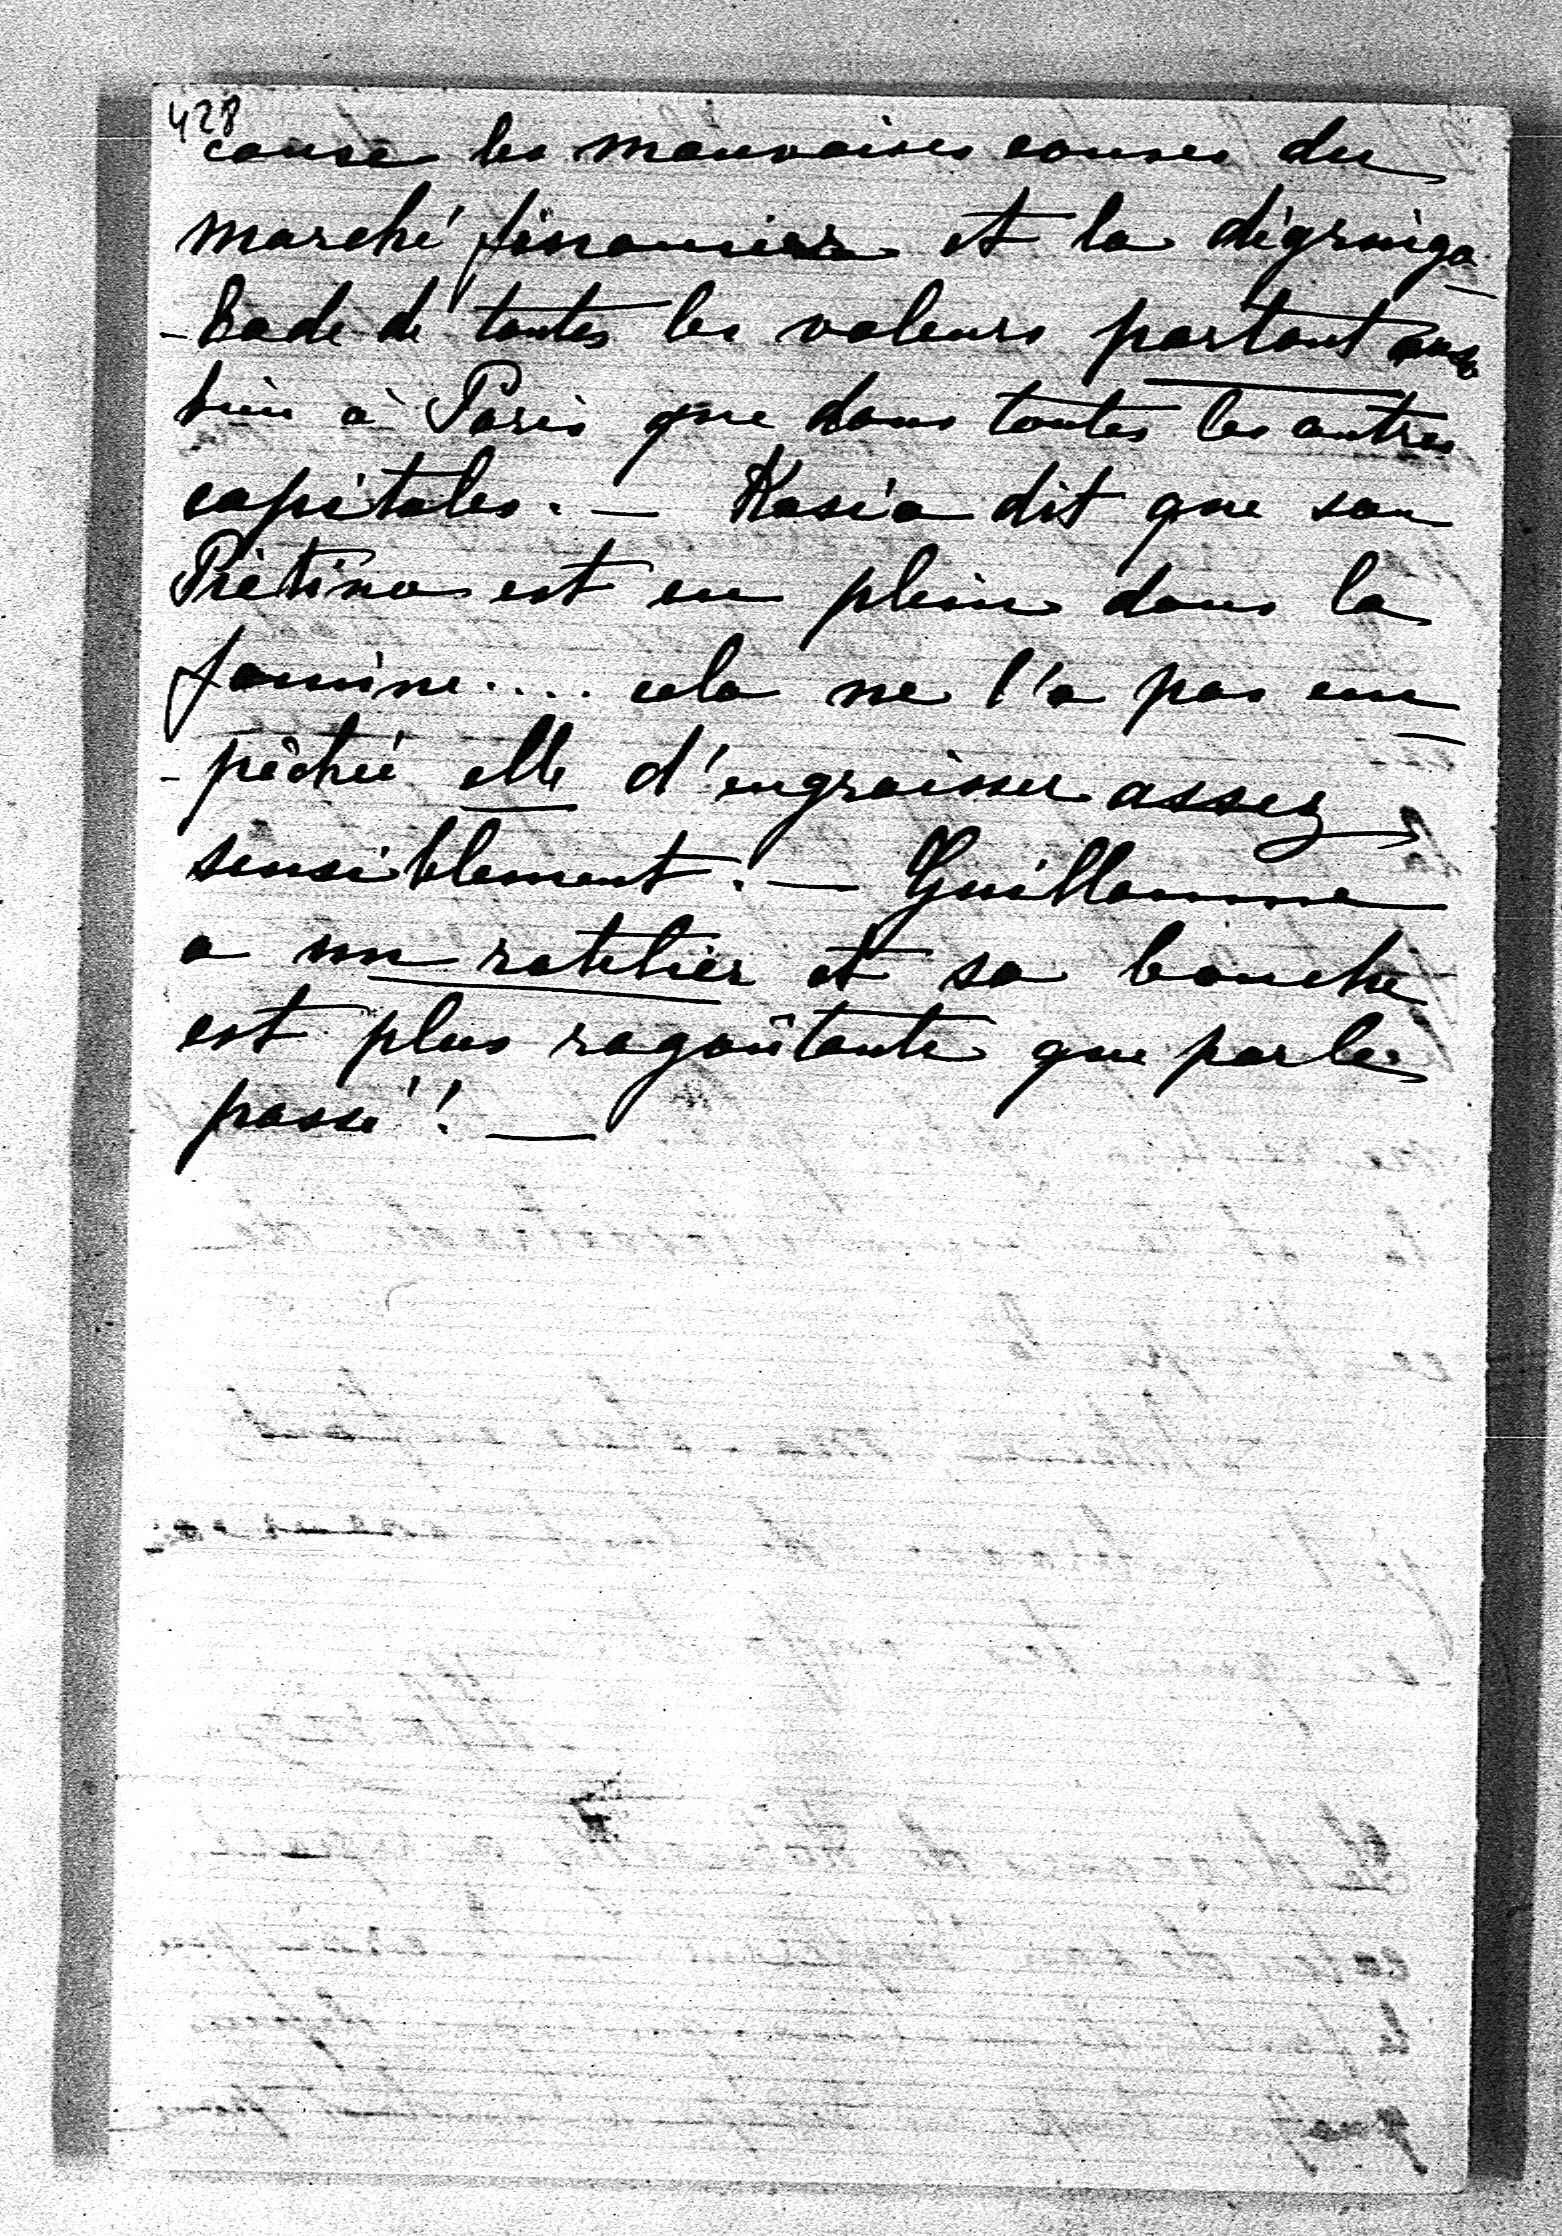 428
cause les mauvaises courses du
marché financier et la dégringo
-lade de toutes les valeurs partout aussi
bien à Paris que dans toutes les autres
capitales. — Kasia dit que son
est en plein dans la
famine.... cela ne l'a pas em
-pêchée elle d'engraisser assez
sensiblement. — Guillaume
a un ratelier et sa bouche
est plus ragoûtante que par le
passé! —